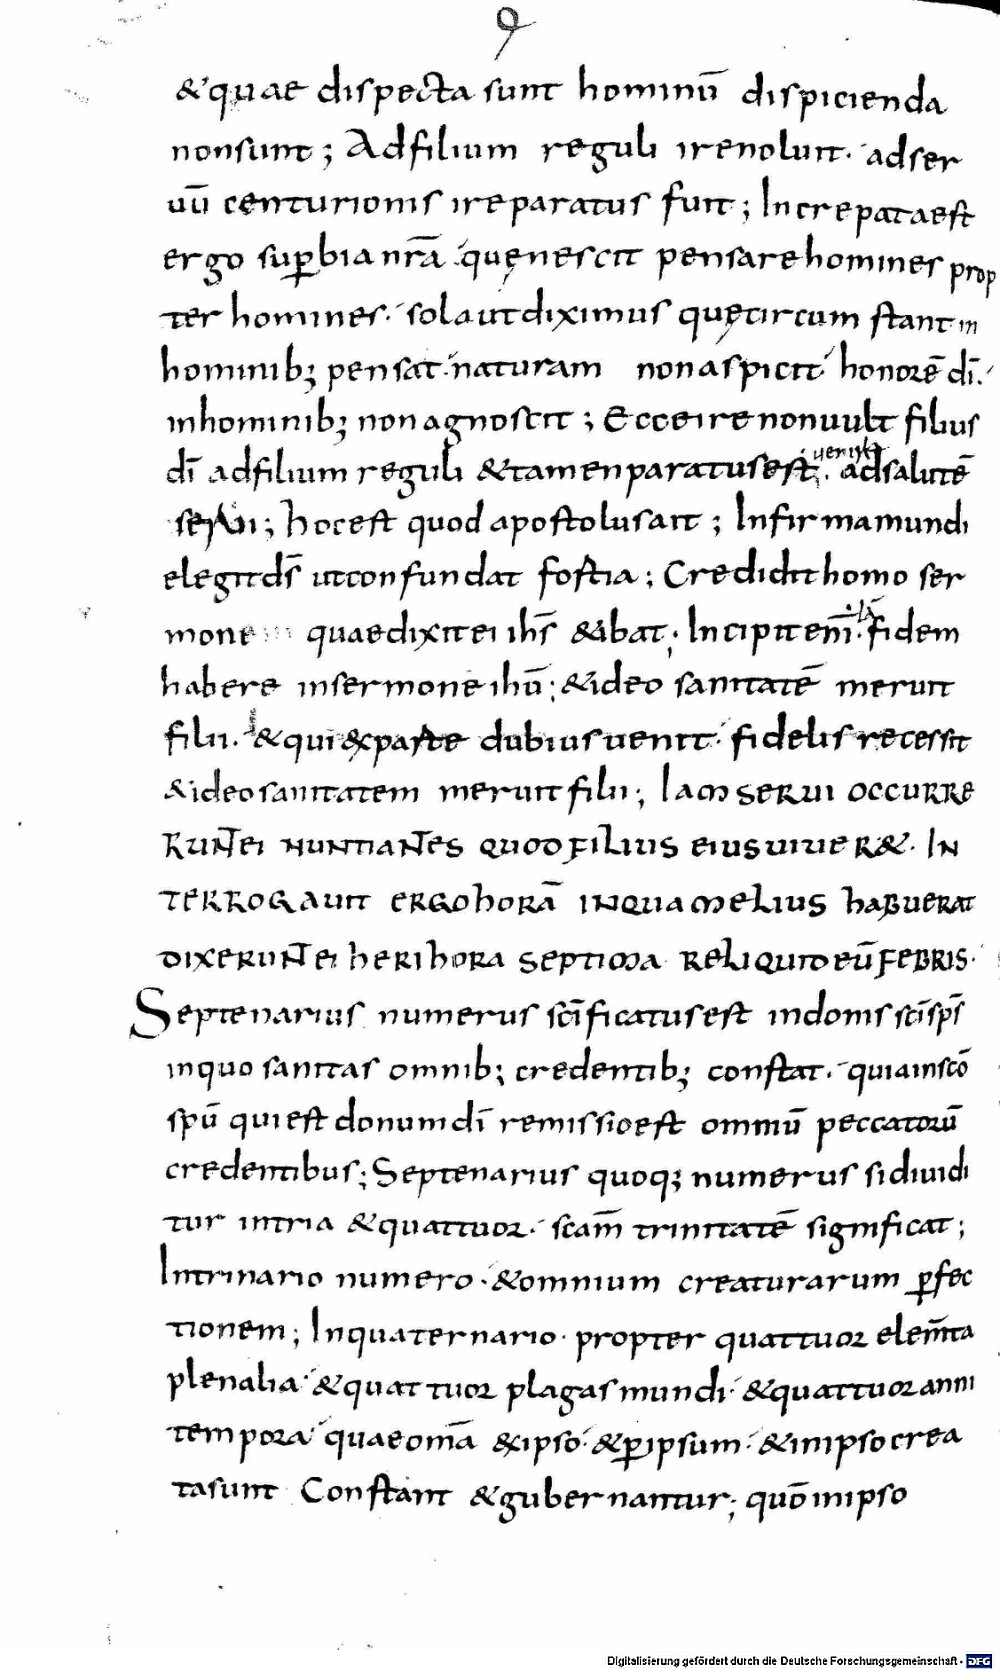 9
&quae dispecta sunt hominū dispicienda
non sunt; Ad filium reguli ire noluit. ad ser
uū centurionis ire paratus fuit; Increpata est
ergo suꝑbia nr̄a. quę nescit pensare homines prop
ter homines. sola ut diximus quę circumstant in
hominib; pensat. naturam non aspicit honorē dī.
in hominib; non agnoscit; Ecce ire non uult filius
dī ad filium reguli & tamen paratus est. uenire ad salutē
serui; hoc est quod apostolus ait; Infirma mundi
elegit ds̄ ut confundat fortia; Credidit homo ser
mone quae dixit ei ihs̄ & ibat. Incipit em̄. iā fidem
habere in sermone ihū; & ideo sanitatē meruit
filii. & qui ex parte dubius uenit. fidelis recessit
& ideo sanitatem meruit filii; Iam serui occurre
runt ei nuntiantes quod filius eius uiuer&. In
terrogauit ergo horā in qua melius habuerat
dixerunt ei heri hora septima reliquid eū febris.
Septenarius numerus sc̄ificatus est in donis sc̄i sps̄
in quo sanitas omnib; credentib; constat. quia in sc̄o
spū qui est donum dī remissio est omniū peccatorū
credentibus; Septenarius quoq; numerus si diuidi
tur in tria & quattuor. sc̄am trinitatē significat;
In trinario numero. & omnium creaturarum ꝑfec
tionem; In quaternario. propter quattuor elem̄ta
plenalia. & quattuor plagas mundi. & quattuor anni
tempora quae om̄a ex ipso. & ꝑ ipsum. & in ipso crea
ta sunt Constant & gubernantur; quō in ipso
Digitalisierung gefördert durch die Deutsche Forschungsgemeinschaft - DFG